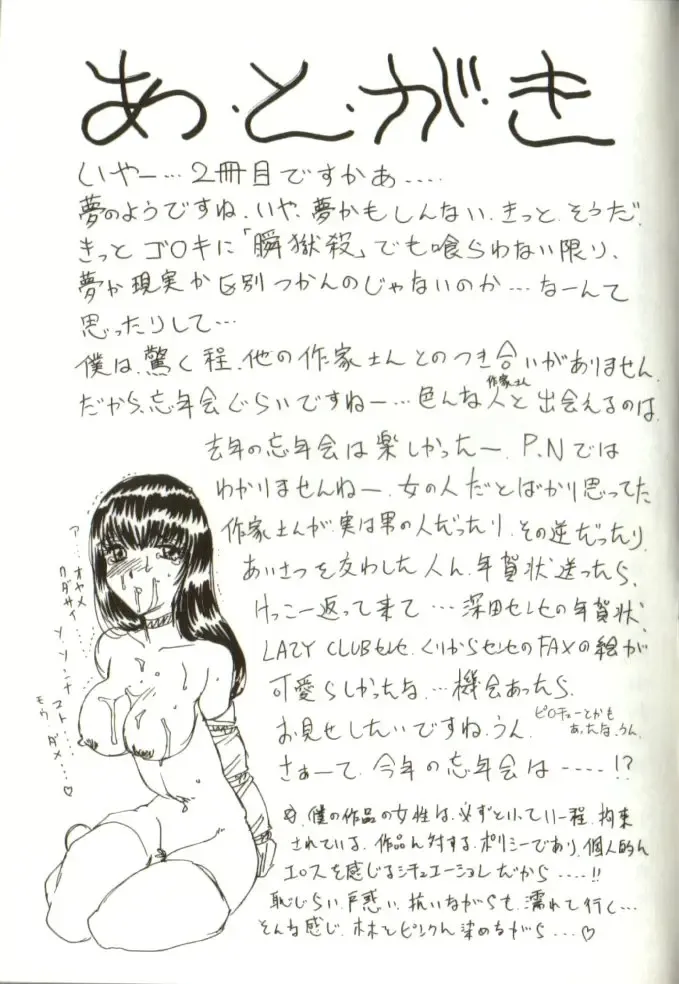 あ・と・がき
いやー…2冊目ですかぁ....
夢のようですね.いや、夢かもしんない.きっと.そうだ.
きっとゴウキに「瞬獄殺」でも喰らわない限り、
夢か現実か区別つかんのじゃないのか…なーんて
思ったりして…
僕は、驚く程、他の作家さんとのつき合いがありません.
だから、忘年会ぐらいですねー…色んな人と出会えるのは、
作家さん
去年の忘年会は楽しかったー.P.Nでは
わかりませんねー、女の人だとばかり思ってた
作家さんが、実は男の人だったり、その逆だったり、
あいさつを交わした人に、年賀状送ったら、
けっこー返って来て…深田センセの年賀状、
LAZY CLUBセンセ、くりからセンセのFAXの絵が
可愛らしかったな.…機会あったら、
お見せしたいですね、うん.
ピロチューとかも
あったな、うん.
さぁーて、今年の忘年会は----!?
僕の作品の女性は、必ずといってい一程、拘束
されている、作品に対する、ポリシーであり、個人的に
エロスを感じるシチュエーションだから.....!!
恥じらい、戸惑い、抗いながらも、濡れて行く…
そんな感じ、ホホとピンクに染めながら...♡
ア…オヤメ
クダサイ
ソ、ソンナ
コト...
モウ…ダメ...♡